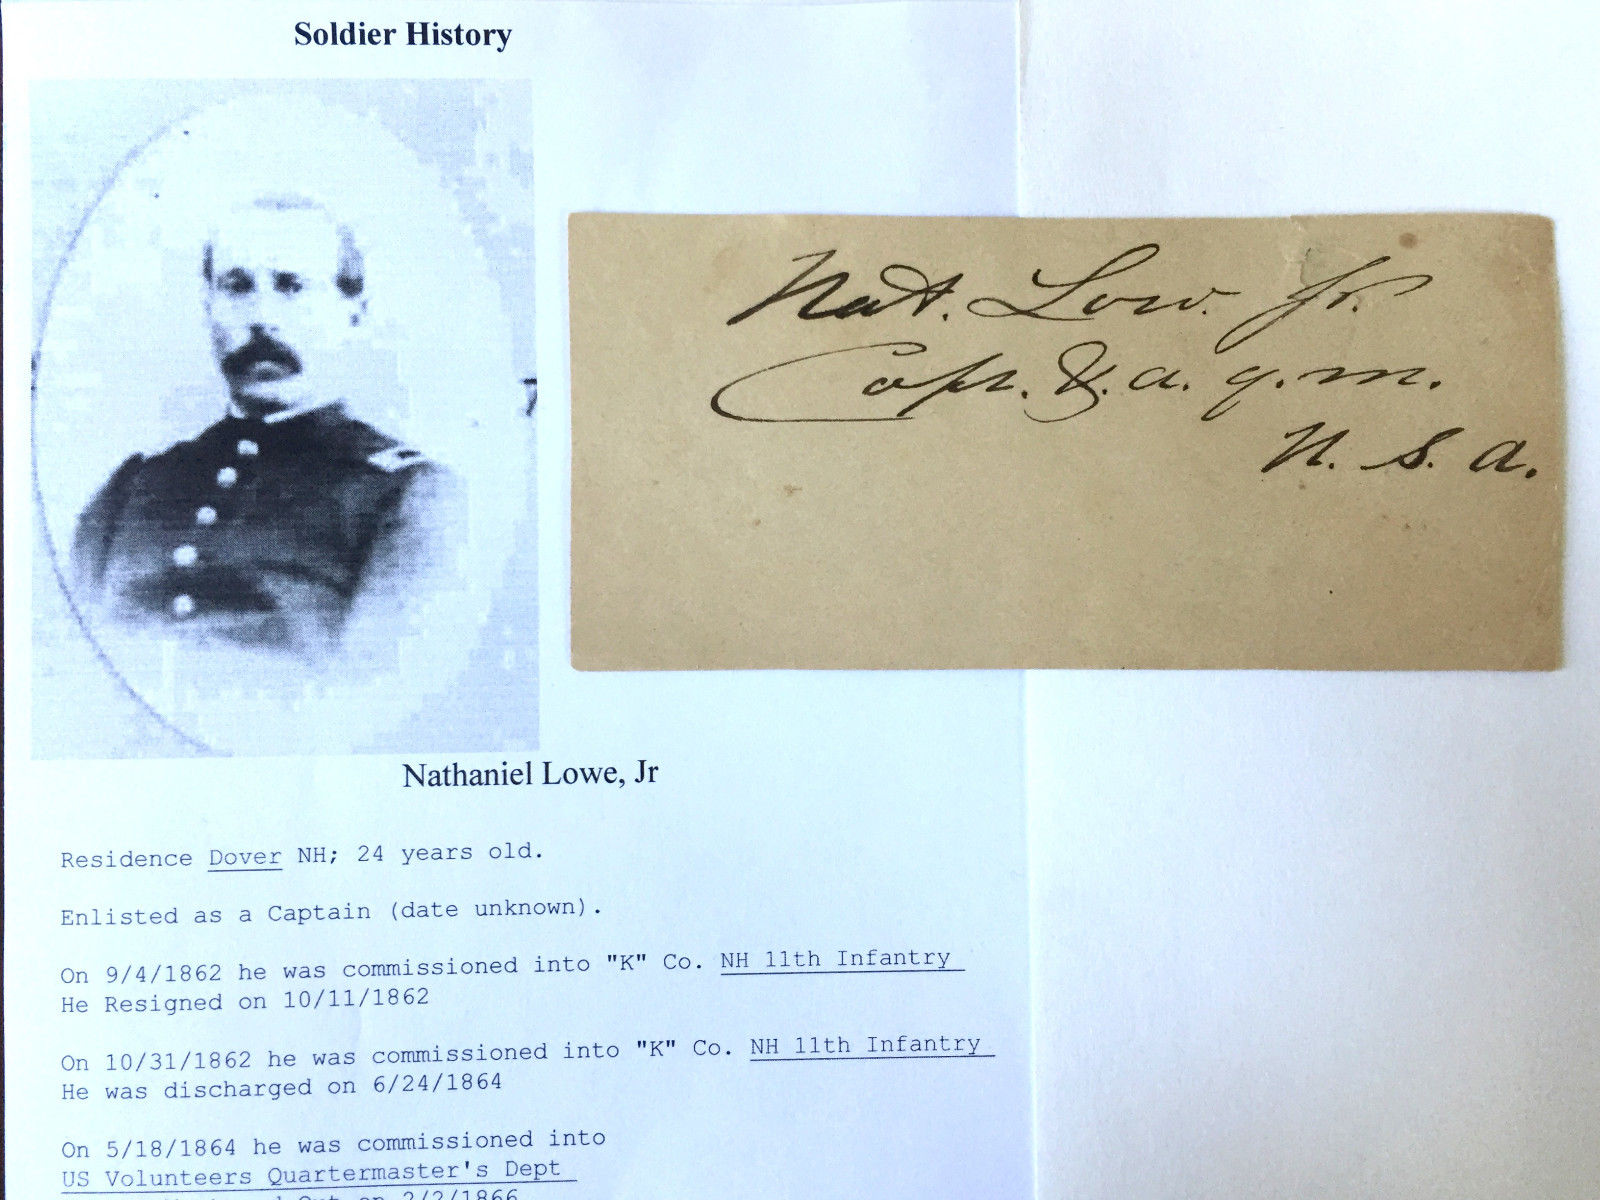 Soldier History
Nat. Low. Jr.
Capt. & a. q. m.
U. S. A.
Nathaniel Lowe, Jr
Residence Dover NH; 24 years old.
Enlisted as a Captain (date unknown).
On 9/4/1862 he was commissioned into "K" Co. NH 11th Infantry
He Resigned on 10/11/1862
On 10/31/1862 he was commissioned into "K" Co. NH 11th Infantry
He was discharged on 6/24/1864
On 5/18/1864 he was commissioned into
US Volunteers Quartermaster's Dept
Out on 2/2/1866